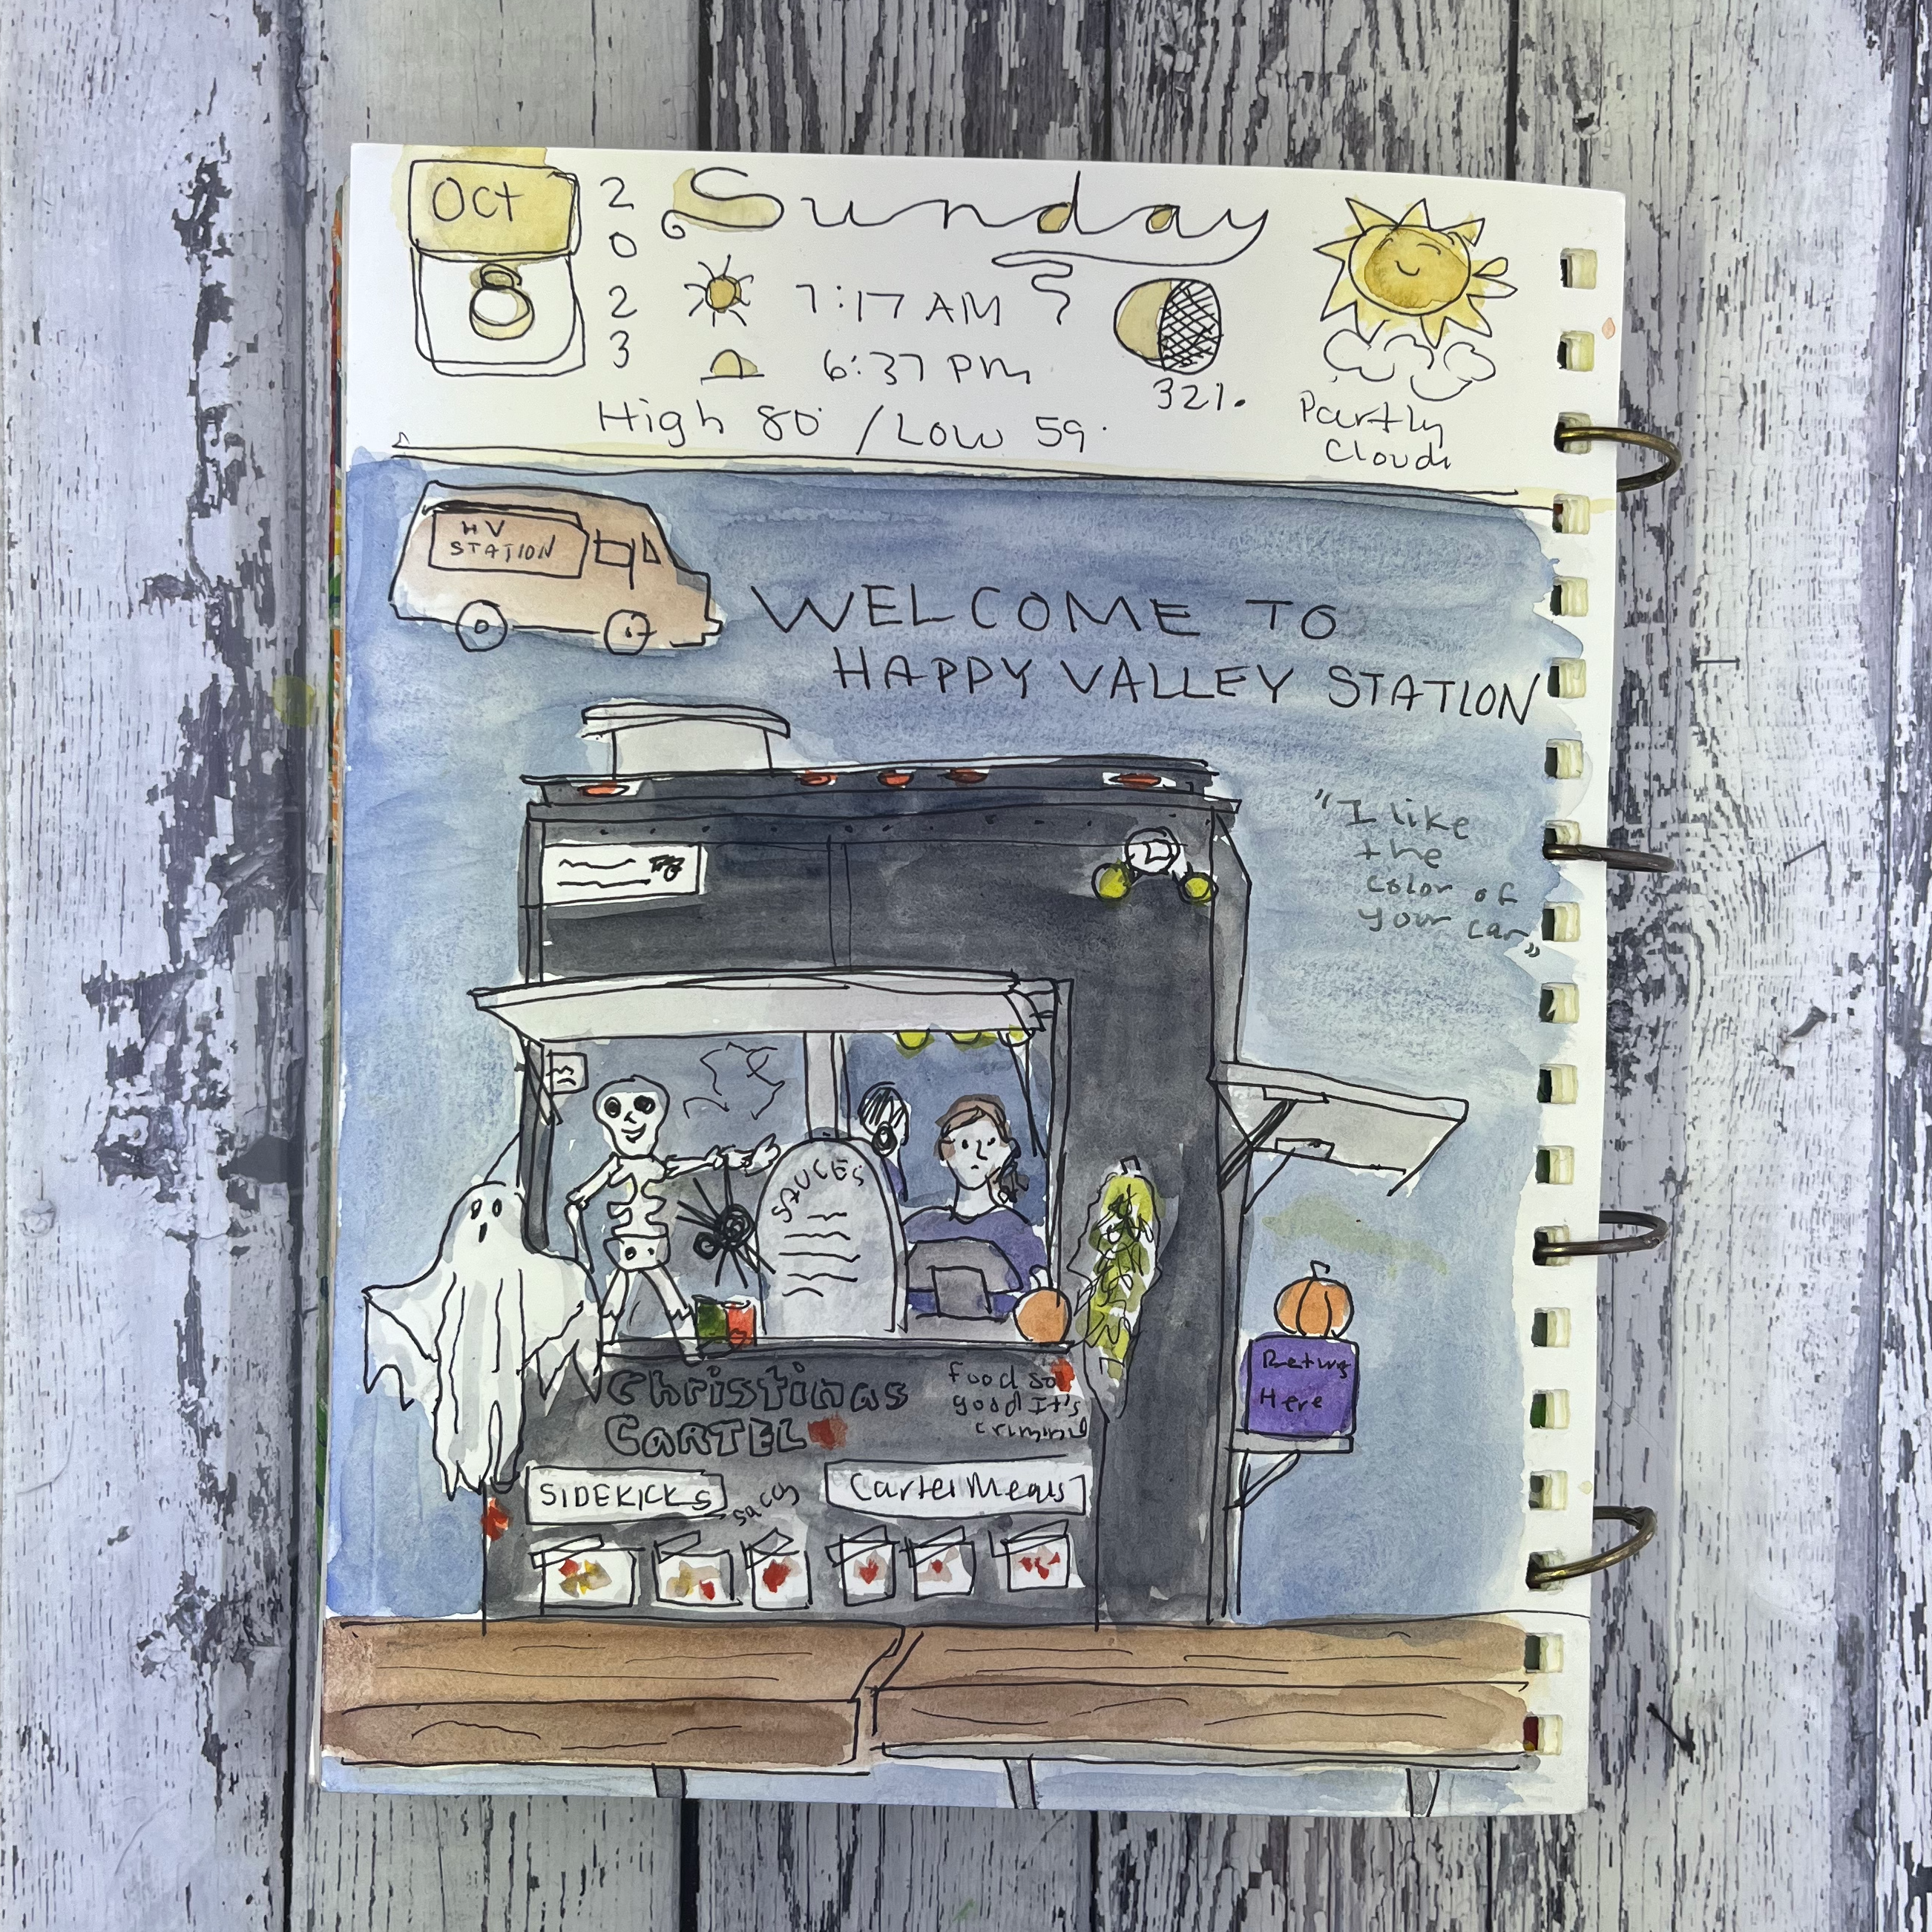 Oct
8
2
0
2
3
Sunday
7:17 AM
6:37 PM
32%
High 80° / Low 59°
Partly
Cloudy
HV
STATION
WELCOME TO
HAPPY VALLEY STATION
"I like
the
color of
your car"
SAUCES
Christinas
CARTEL
food so
good It's
criminal
SIDEKICKS
Cartel Meals
Here